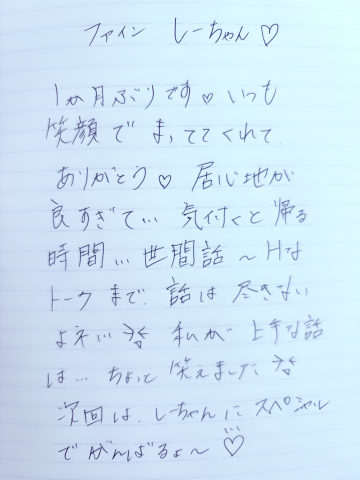 ファイン しーちゃん♡
1か月ぶりです♡いつも
笑顔でまっててくれて
ありがとう♡ 居心地が
良すぎて… 気付くと帰る
時間… 世間話～Hな
トークまで、話は尽きない
よネ… 私が上手な話
は… ちょっと笑えました
次回は、しーちゃんにスペシャル
でがんばるょ～♡